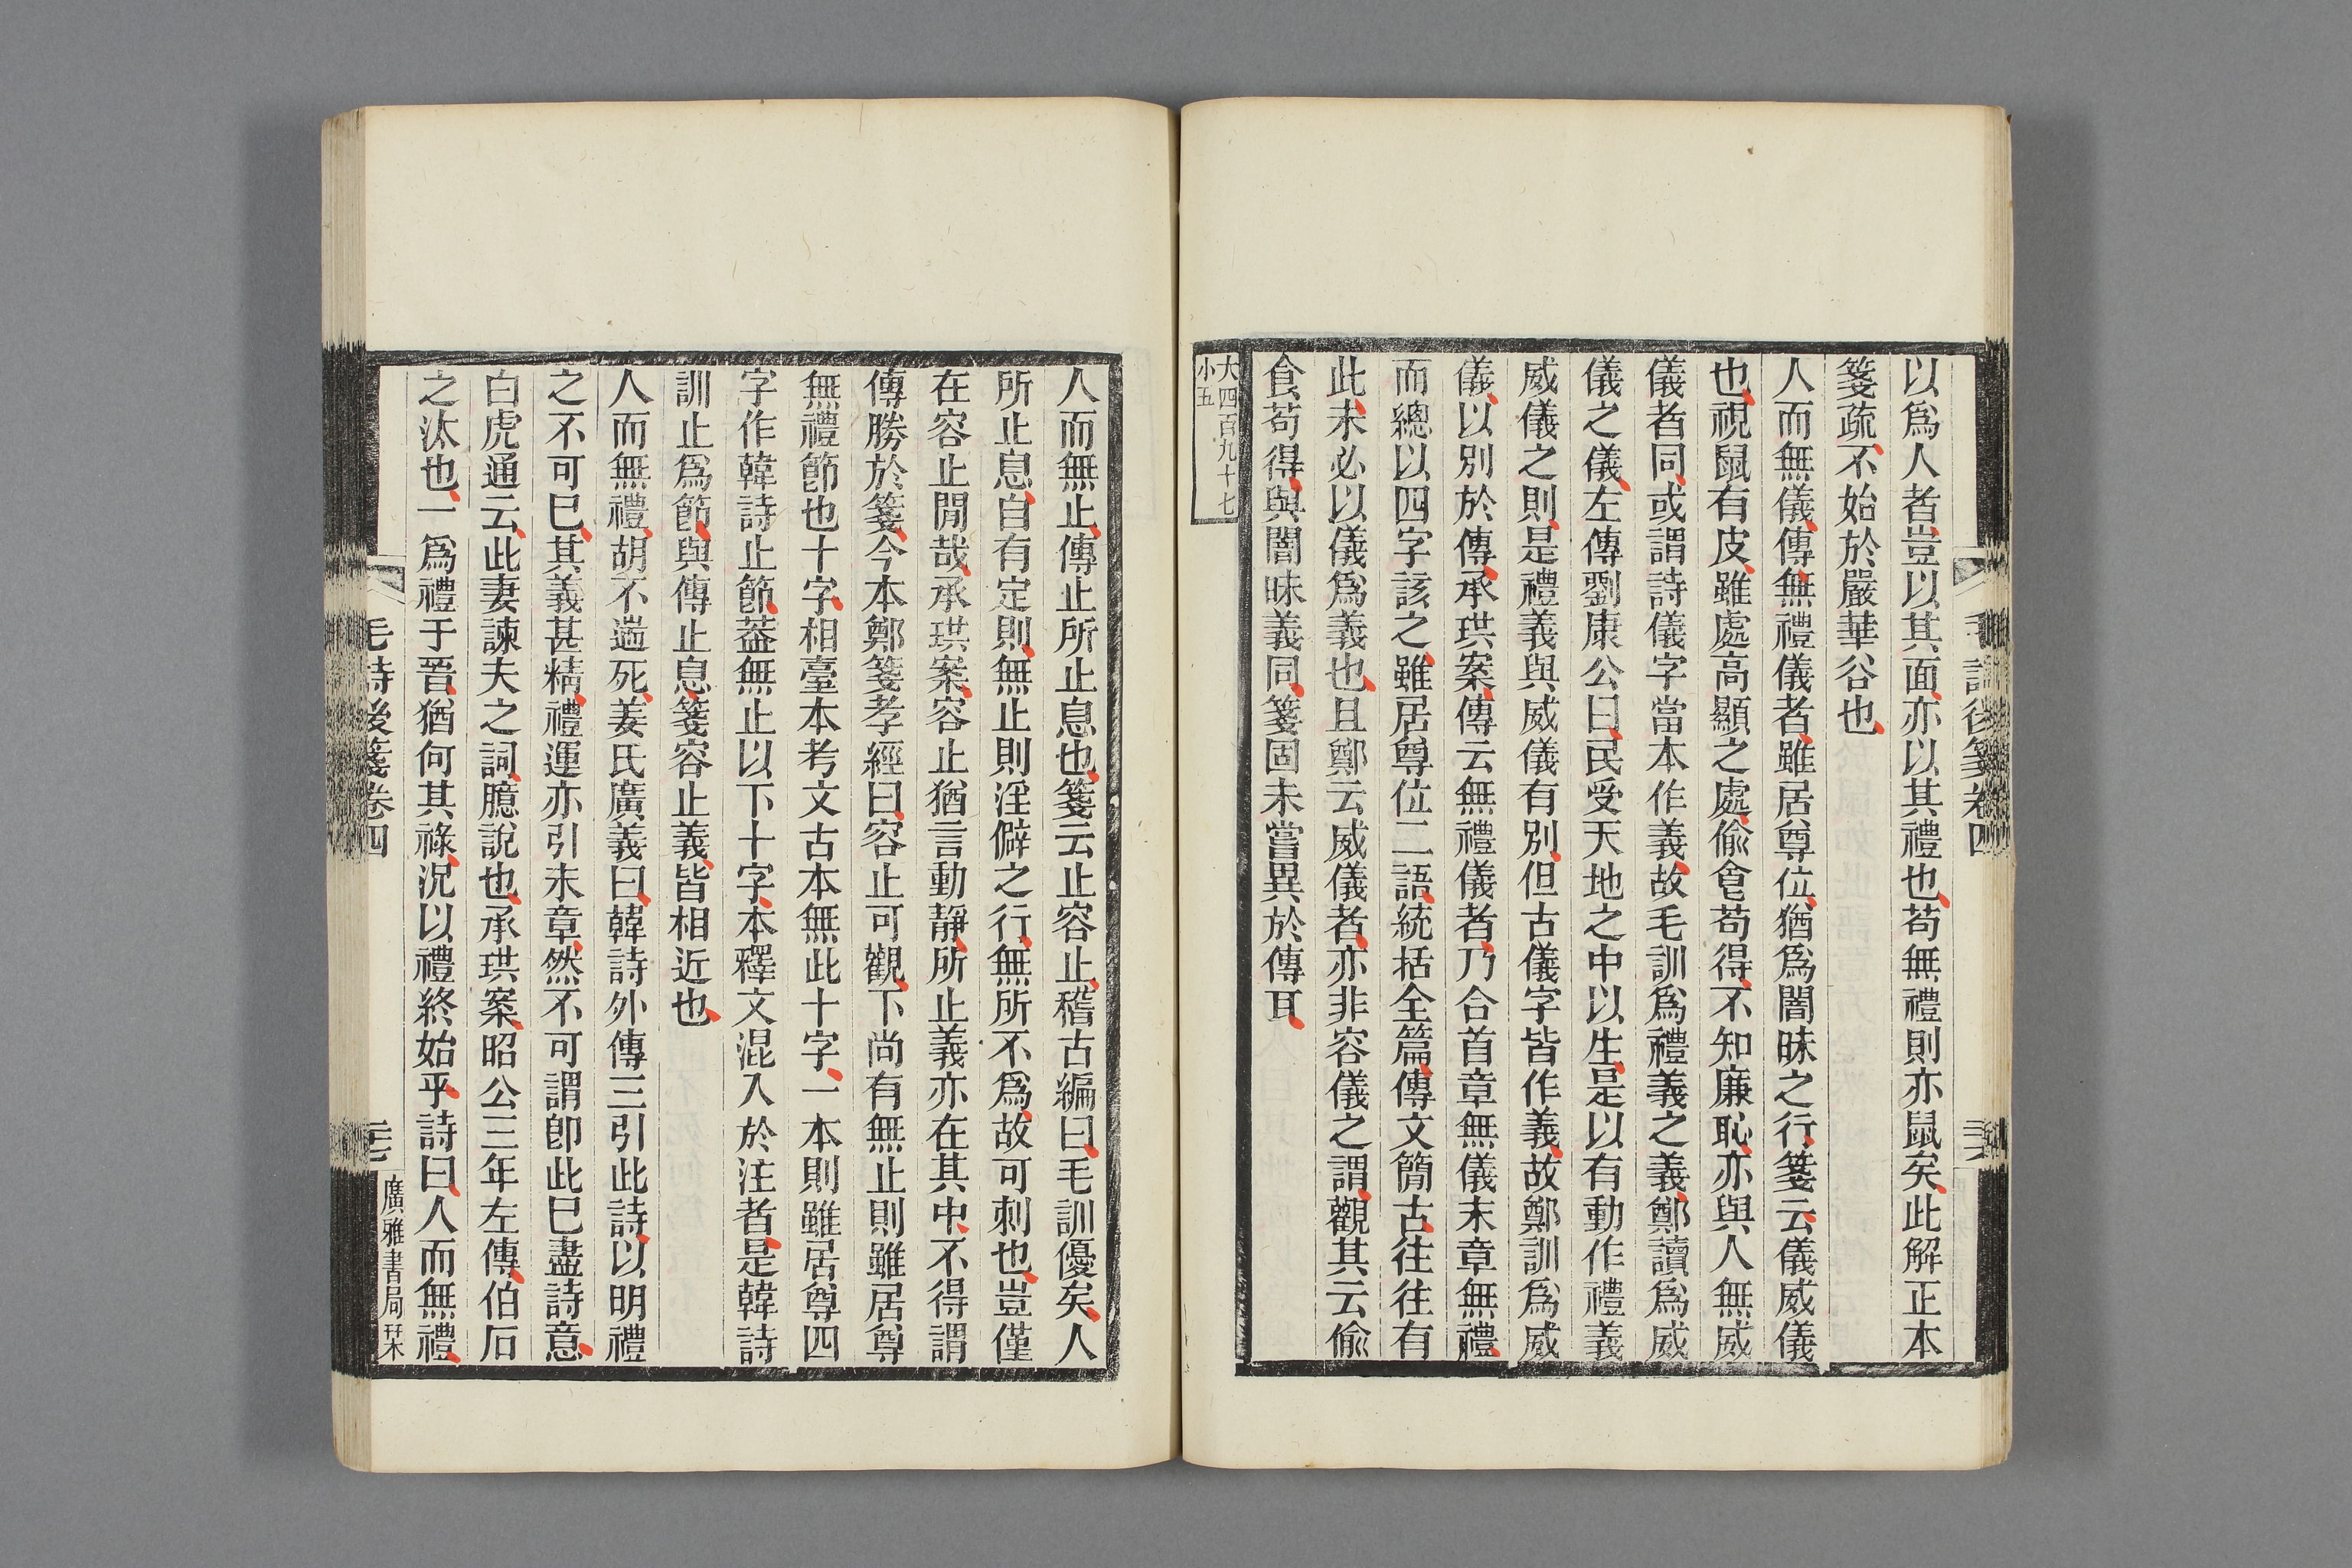 以爲人者豈以其面亦以其禮也苟無禮則亦鼠矣此解正本
箋疏不始於嚴華谷也
人而無儀傳無禮儀者雖居尊位猶爲闇昧之行箋云儀威儀
也視鼠有皮雖處高顯之處偷食苟得不知廉恥亦與人無威
儀者同或謂詩儀字當本作義故毛訓爲禮義之義鄭讀爲威
儀之儀左傳劉康公曰民受天地之中以生是以有動作禮義
威儀之則是禮義與威儀有別但古儀字皆作義故鄭訓爲威
儀以別於傳承珙案傳云無禮儀者乃合首章無儀末章無禮
而總以四字該之雖居尊位二語統括全篇傳文簡古往往有
此未必以儀爲義也且鄭云威儀者亦非容儀之謂觀其云偷
食苟得與闇昧義同箋固未嘗異於傳耳
大四百九十七
小五
人而無止傳止所止息也箋云止容止稽古編曰毛訓優矣人
所止息自有定則無止則淫僻之行無所不爲故可刺也豈僅
在容止閒哉承珙案容止猶言動靜所止義亦在其中不得謂
傳勝於箋今本鄭箋孝經曰容止可觀下尚有無止則雖居尊
無禮節也十字相臺本考文古本無此十字一本則雖居尊四
字作韓詩止節葢無止以下十字本釋文混入於注者是韓詩
訓止爲節與傳止息箋容止義皆相近也
人而無禮胡不遄死姜氏廣義曰韓詩外傳三引此詩以明禮
之不可已其義甚精禮運亦引末章然不可謂卽此已盡詩意
白虎通云此妻諫夫之詞臆說也承珙案昭公三年左傳伯石
之汰也一爲禮于晉猶何其祿況以禮終始乎詩曰人而無禮
毛詩後箋卷四
廣雅書局栞